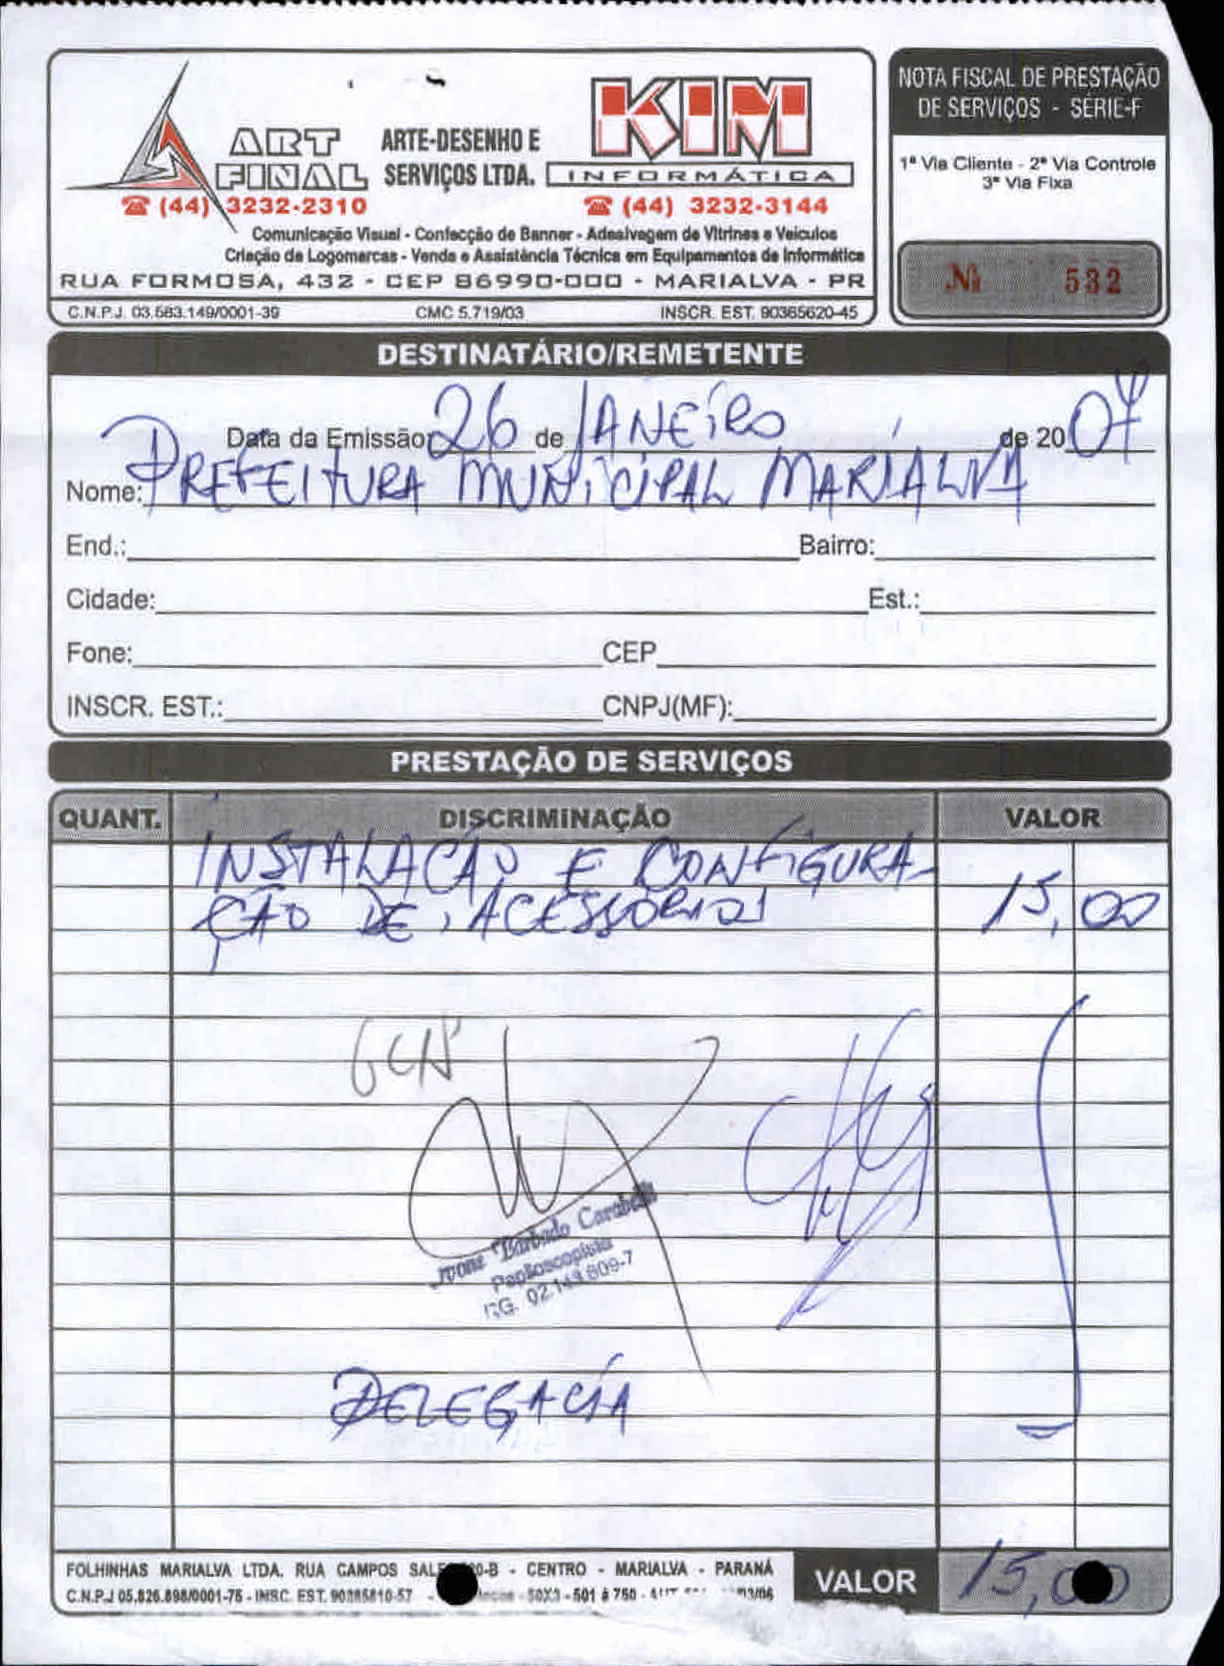 ART FINAL
ARTE-DESENHO E SERVIÇOS LTDA.
KIM
INFORMÁTICA
(44) 3232-2310
(44) 3232-3144
Comunicação Visual - Confecção de Banner - Adesivagem de Vitrines e Veículos
Criação de Logomarcas - Venda e Assistência Técnica em Equipamentos de Informática
RUA FORMOSA, 432 - CEP 86990-000 - MARIALVA - PR
C.N.P.J. 03.583.149/0001-39 CMC 5.719/03 INSCR. EST. 90365620-45
NOTA FISCAL DE PRESTAÇÃO
DE SERVIÇOS - SÉRIE-F
1ª Via Cliente - 2ª Via Controle
3ª Via Fixa
Nº 532
DESTINATÁRIO/REMETENTE
Data da Emissão 26 de JANEIRO de 2007
Nome: PREFEITURA MUNICIPAL MARIALVA
End.: Bairro:
Cidade: Est.:
Fone: CEP
INSCR. EST.: CNPJ(MF):
PRESTAÇÃO DE SERVIÇOS
QUANT. DISCRIMINAÇÃO VALOR
INSTALAÇÃO E CONFIGURA-
ÇÃO DE ACESSÓRIOS 15,00
Ivone Barbado Carabelli
Papiloscopista
RG. 02.149.809-7
DELEGACIA
FOLHINHAS MARIALVA LTDA. RUA CAMPOS - CENTRO - MARIALVA - PARANÁ
C.N.P.J 05.826.898/0001-76 - INSC. EST. 90285810-57 - 50X3 - 501 à 750
VALOR 15,00